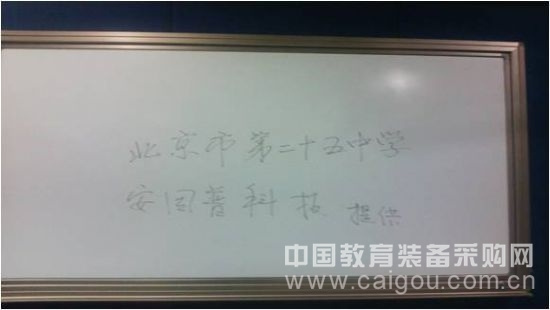 北京市第二十五中学
安固普科技 提供
中国教育装备采购网
www.caigou.com.cn